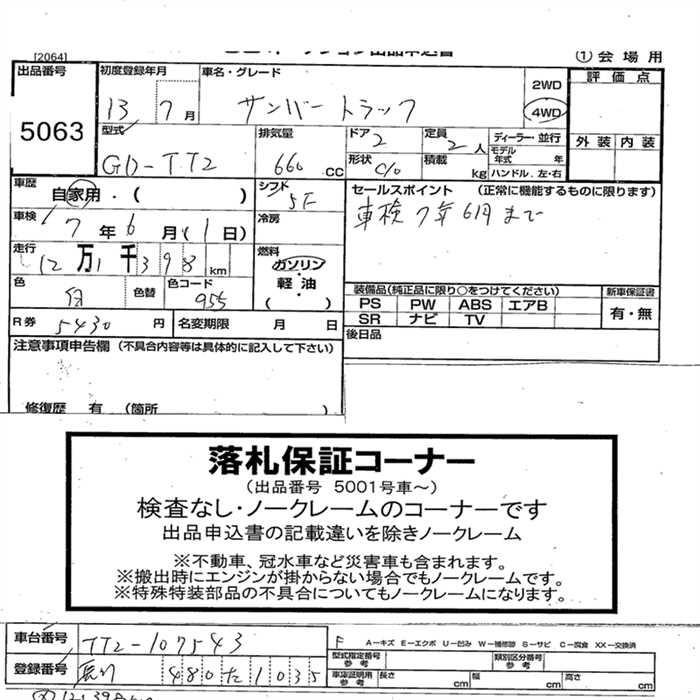 [2064]
① 会 場 用
出品番号
5063
初度登録年月
13 7 月
車名・グレード
サンバー トラック
2WD
4WD
評 価 点
外 装 内 装
型式
GD-TT2
排気量
660 CC
ドア
2
定員
2 人
形状
C/O
積載
kg
ディーラー・並行
モデル年式 年
ハンドル.左・右
車歴
自家用・( )
シフト
5F
車検
7 年 6 月 ( 1 日)
冷房
走行
12 万 1 千 398 km
燃料
ガソリン
軽油・
( )
色
白
色替
色コード
955
R 券 5430 円
名変期限 月 日
セールスポイント (正常に機能するものに限ります)
車検 7年 6月 まで
装備品(純正品に限り○をつけてください)
PS PW ABS エアB
SR ナビ TV
新車保証書
有・無
後日品
注意事項申告欄 (不具合内容等は具体的に記入して下さい)
修復歴 有 (箇所 )
落札保証コーナー
(出品番号 5001号車～)
検査なし・ノークレームのコーナーです
出品申込書の記載違いを除きノークレーム
※不動車、冠水車など災害車も含まれます。
※搬出時にエンジンが掛からない場合でもノークレームです。
※特殊特装部品の不具合についてもノークレームになります。
車台番号
TT2-107543
登録番号
480 た 1035
F
A－キズ E－エクボ U－凹み W－補修跡 S－サビ C－腐食 XX－交換済
型式指定番号
参 考
類別区分番号
参 考
車庫証明用
参 考
長さ cm
幅 cm
高さ cm